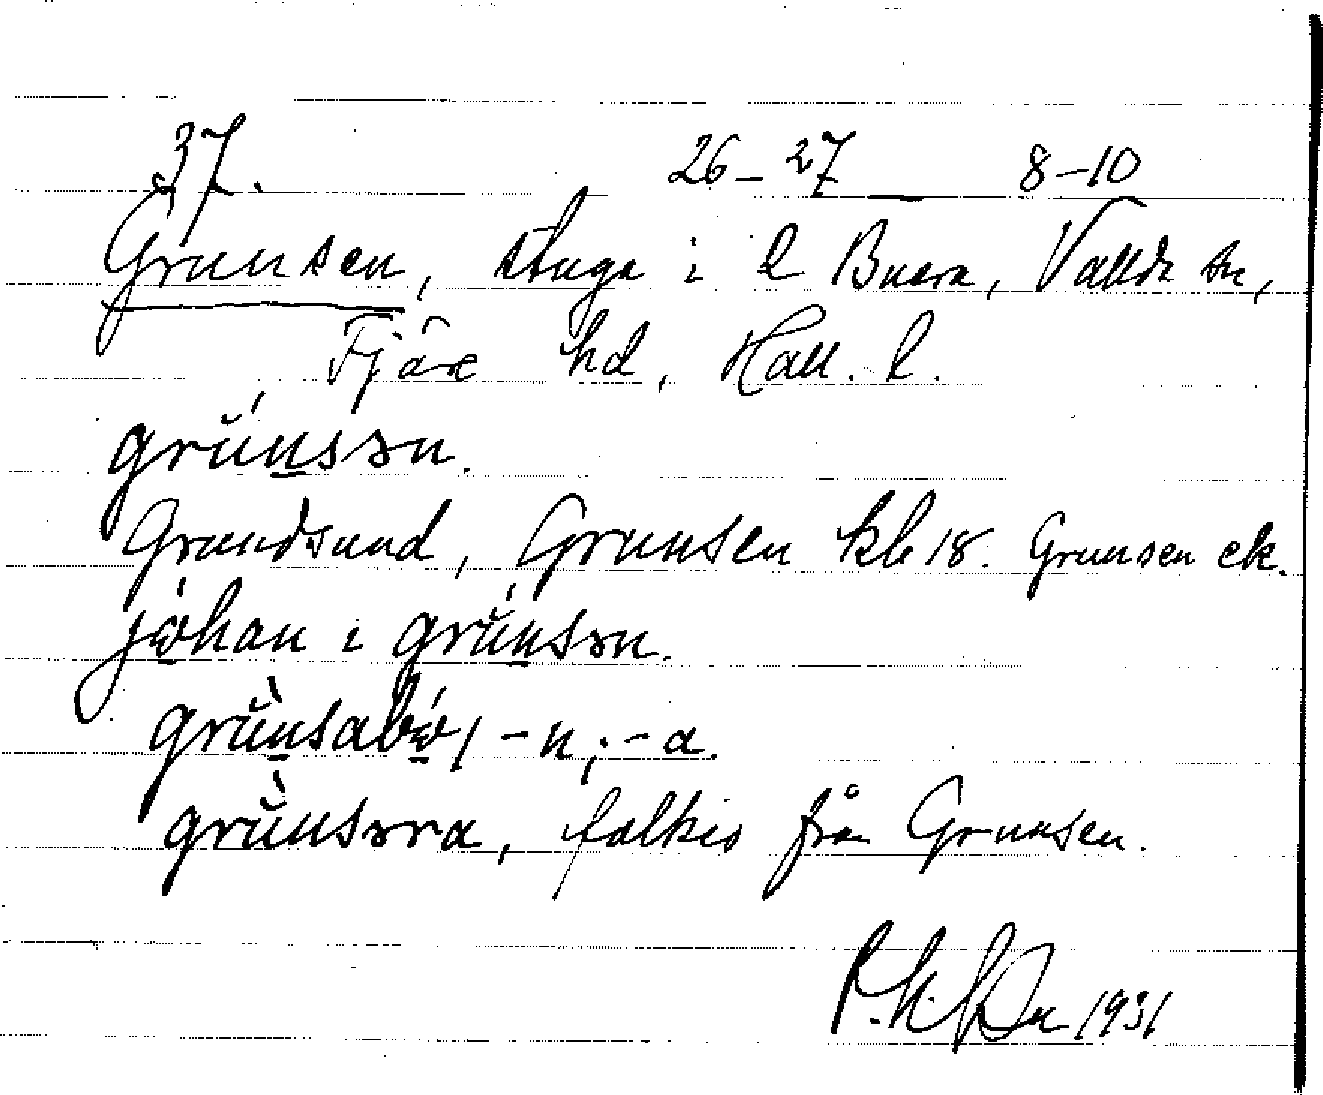 37. 26-27 8-10
Grunsen, stuga i l Buera, Vallda sn,
Fjäre hd, Hall. l.
grŭ́nsən.
Grundsund, Grunsen kb 18. Grunsen ek.
johan i grŭ́nsən.
grŭ̀nsabo/ -n; -a.
grŭ̀nsəra, folkes från Grunsen.
1931